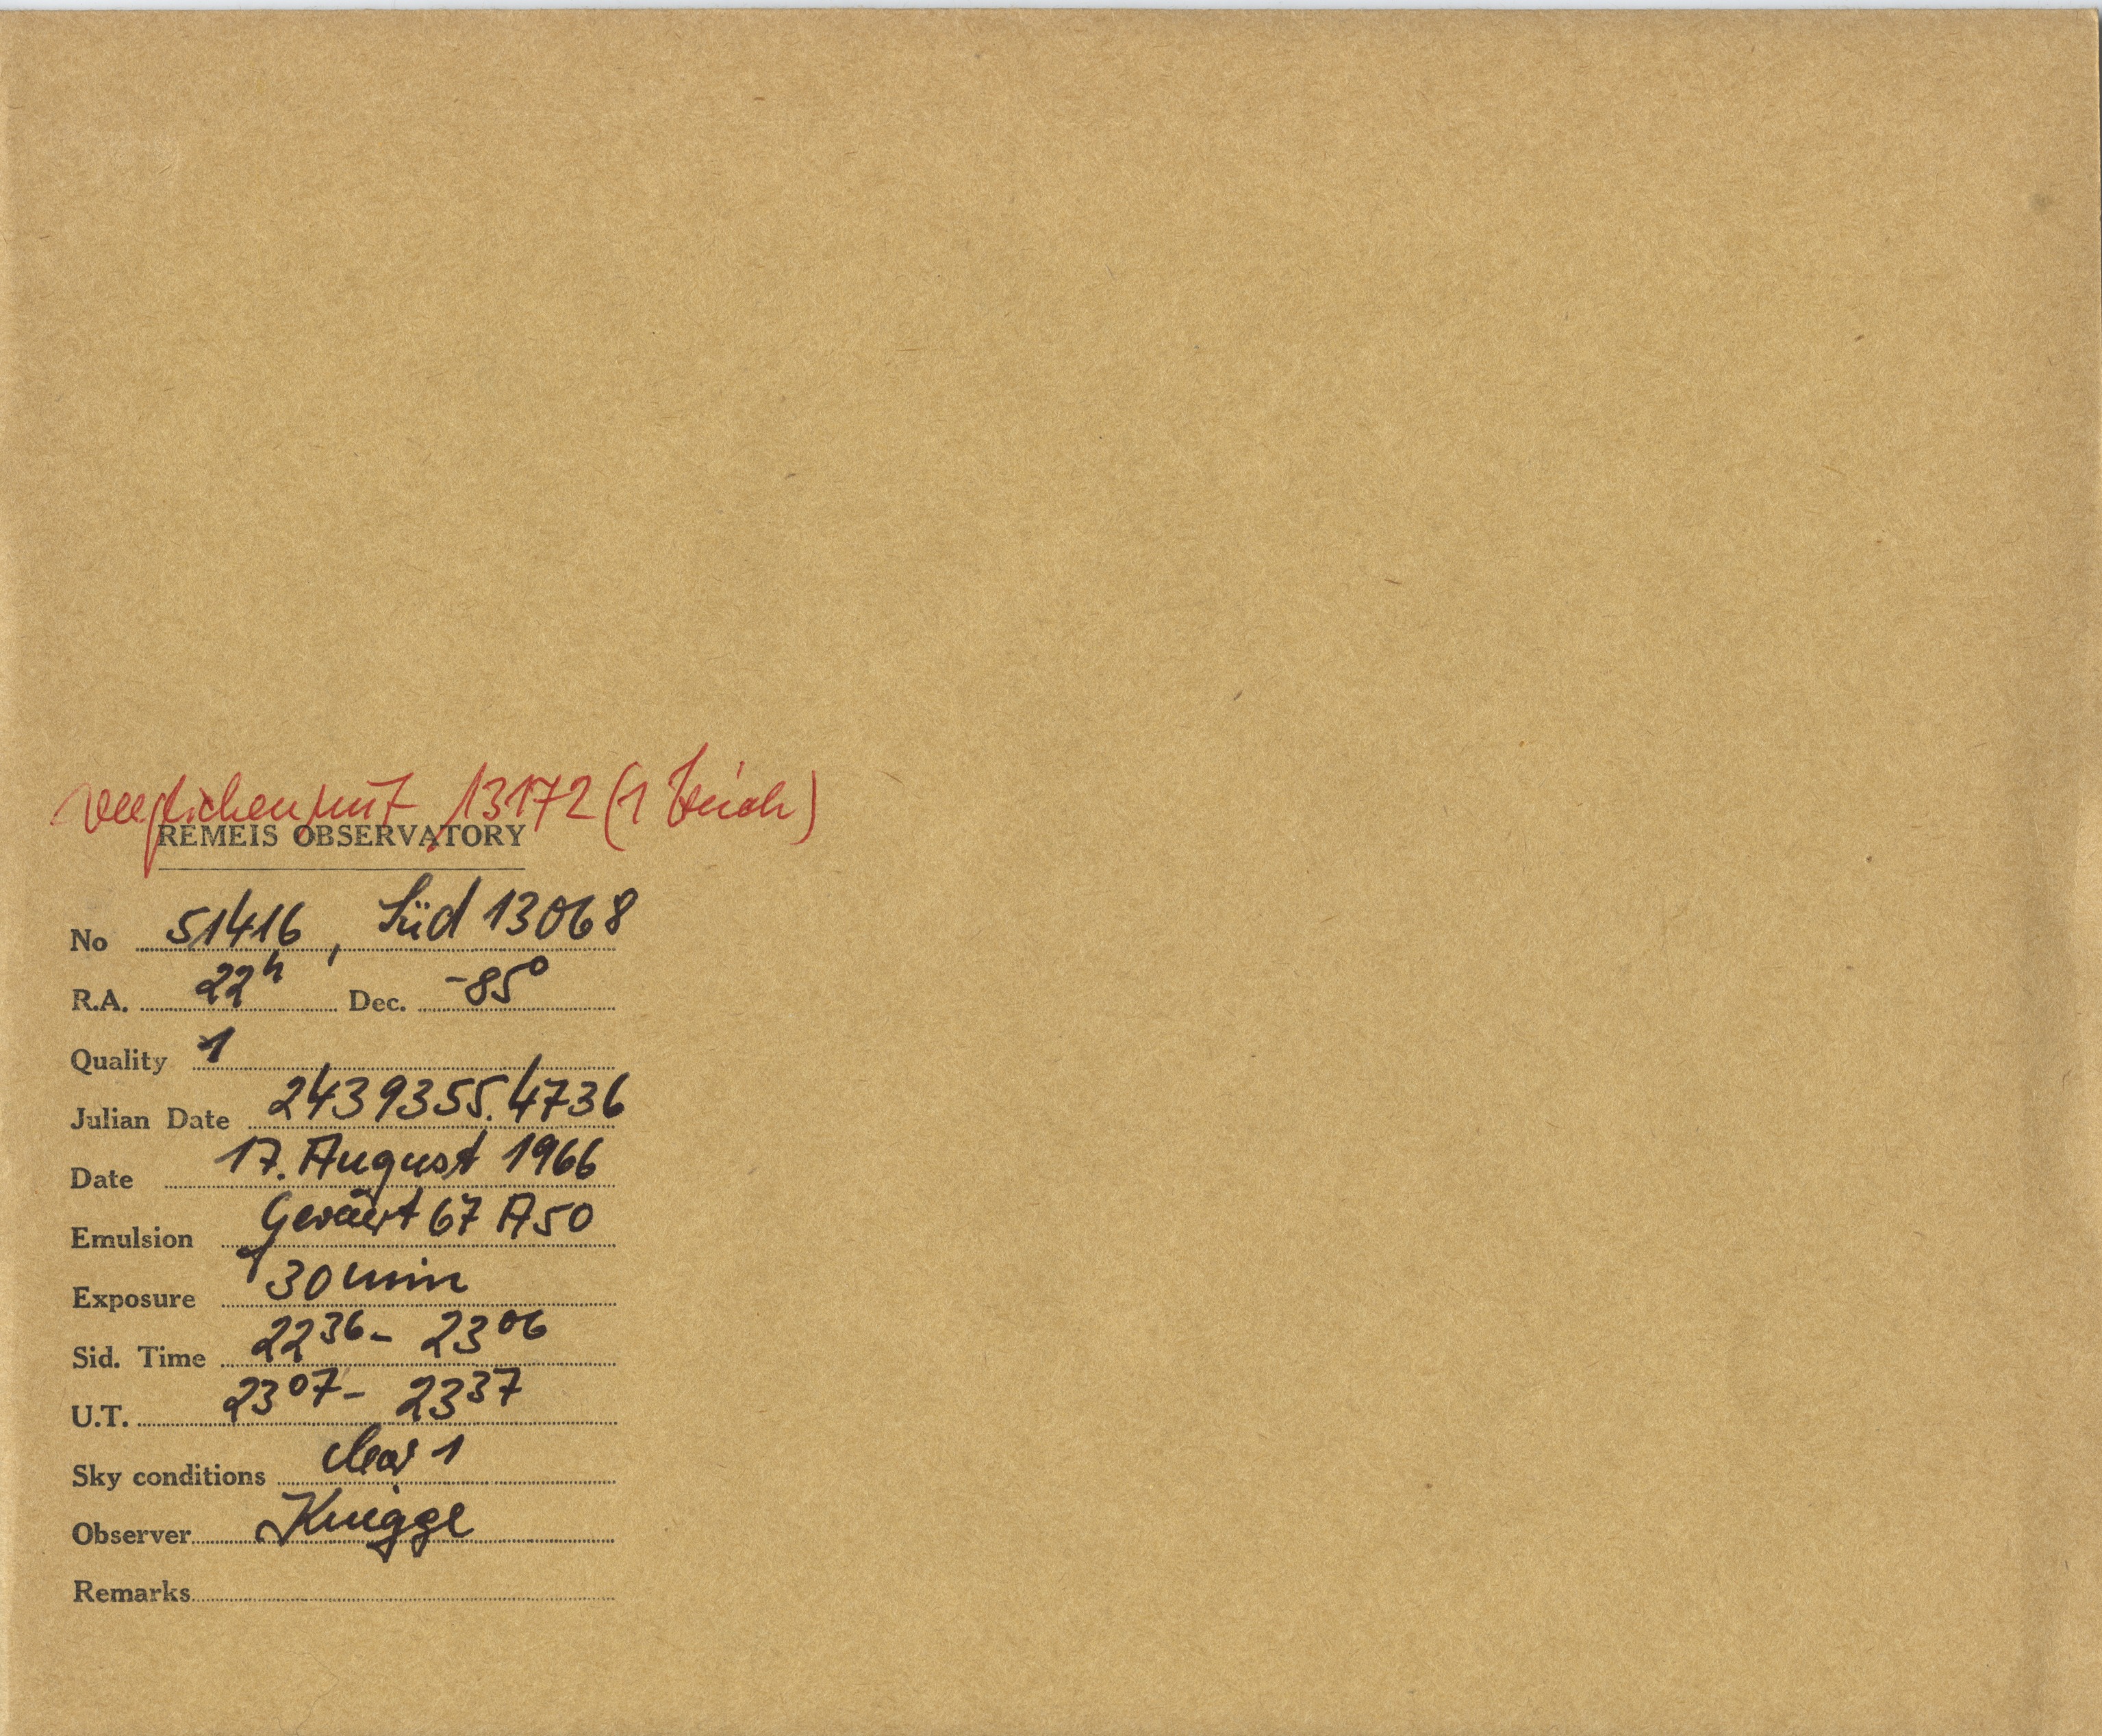 verglichen mit 13172 (1 Strich)
REMEIS OBSERVATORY
No 51416, Süd 13068
R.A. 22h Dec. -85°
Quality 1
Julian Date 2439355.4736
Date 17. August 1966
Emulsion Gevaert 67 A50
Exposure 30 min
Sid. Time 22 36 - 23 06
U.T. 23 07 - 23 37
Sky conditions clear 1
Observer Knigge
Remarks